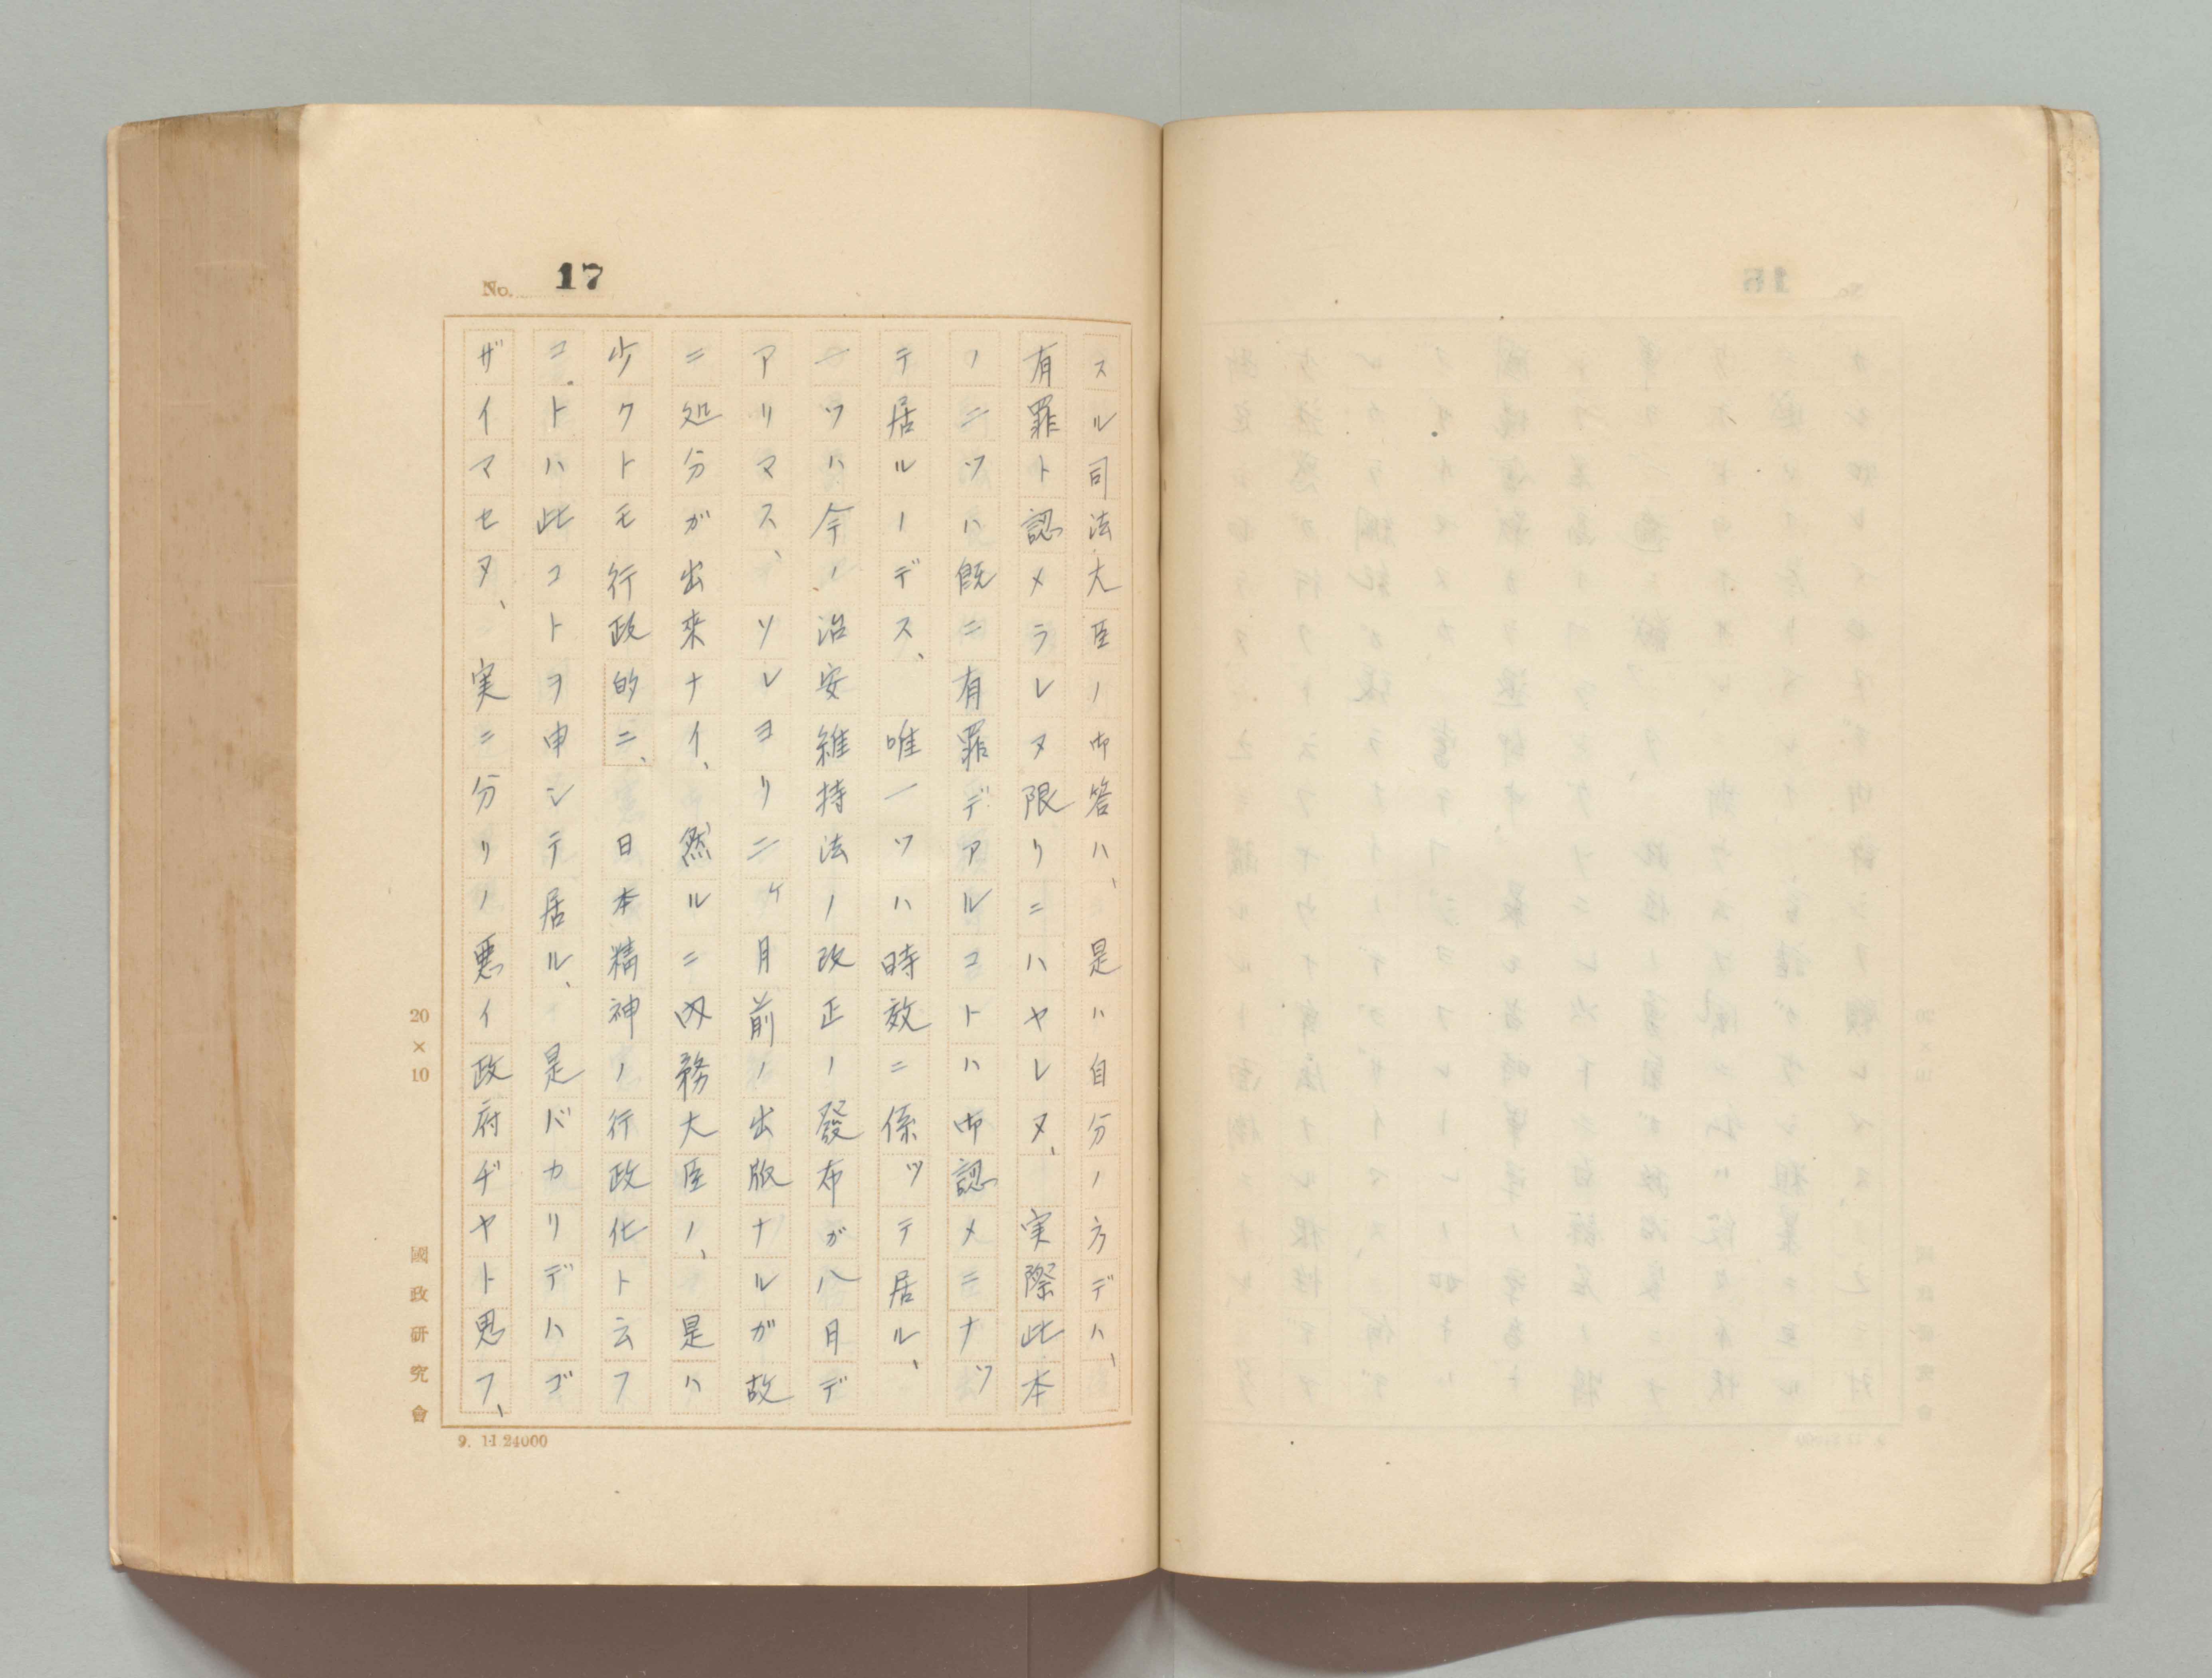 No. 17
スル司法大臣ノ御答ハ、是ハ自分ノ方デハ、
有罪ト認メラレヌ限リニハヤレヌ、実際此本
ノニツハ既ニ有罪デアルコトハ御認メニナツ
テ居ルノデス、唯一ツハ時效ニ係ツテ居ル、
一ツハ今ノ治安維持法ノ改正ノ發布ガ八月デ
アリマス、ソレヨリ二ケ月前ノ出版ナルガ故
ニ処分ガ出來ナイ、然ルニ内務大臣ノ、是ハ
少クトモ行政的ニ、日本精神ノ行政化ト云フ
コトハ此コトヲ申シテ居ル、是バカリデハゴ
ザイマセヌ、実ニ分リノ悪イ政府ヂヤト思フ、
20×10
國政研究會
9. 11 24000